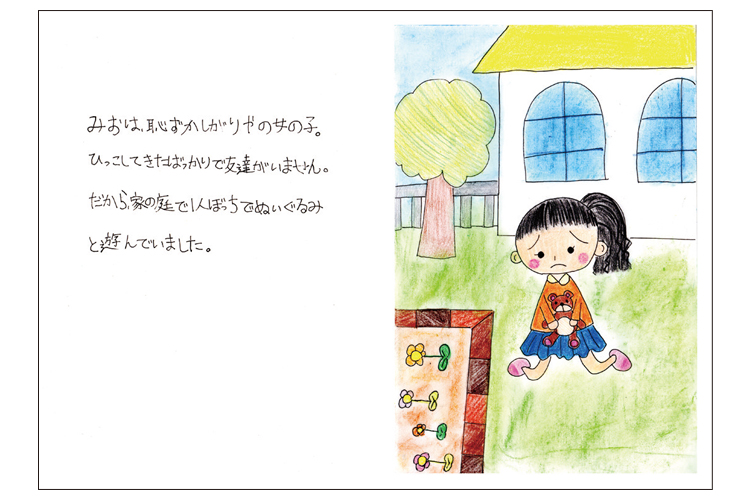 みおは、恥ずかしがりやの女の子。
ひっこしてきたばっかりで友達がいません。
だから、家の庭で1人ぼっちでぬいぐるみ
と遊んでいました。